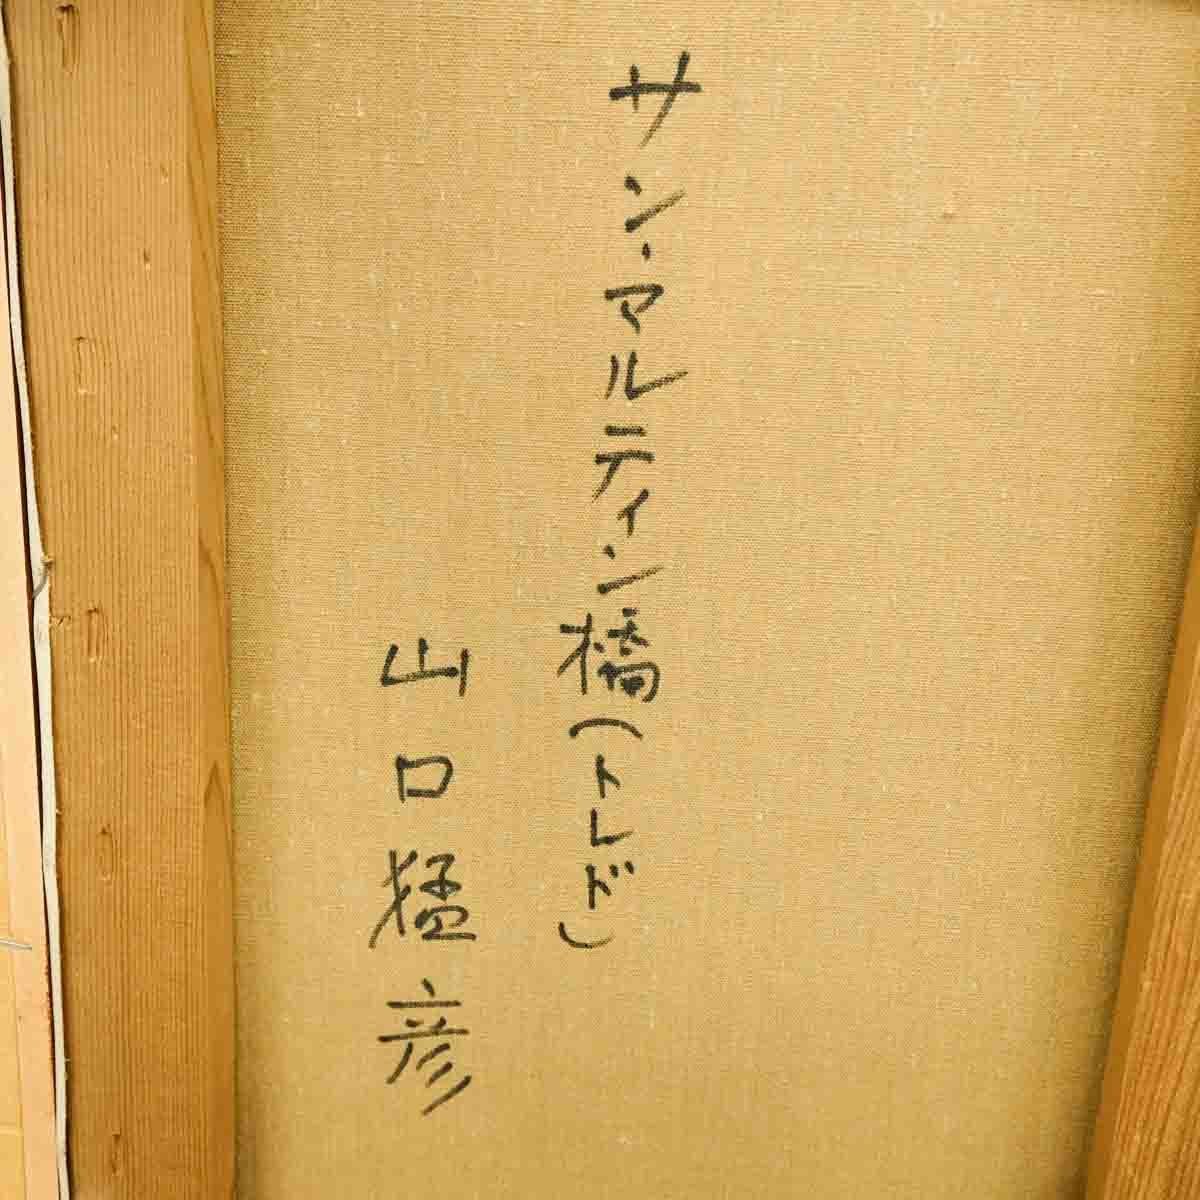 サン・マルティン橋(トレド)
山口猛彦